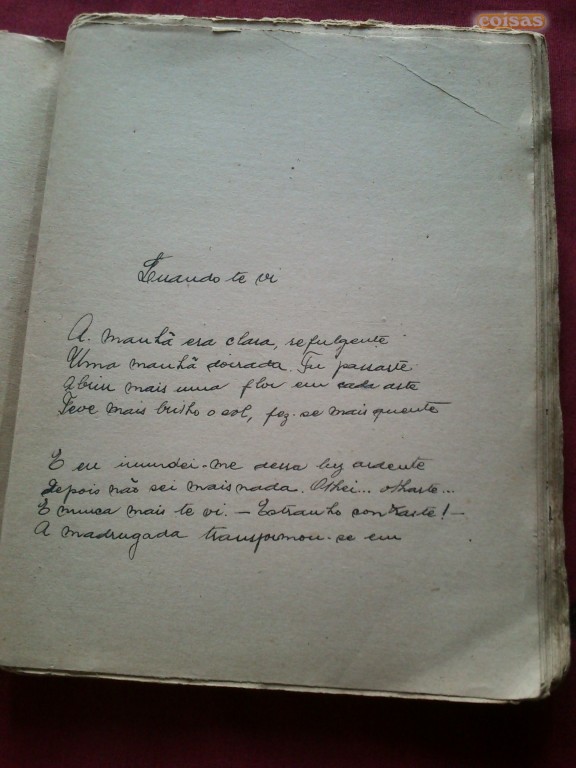 coisas
Quando te vi
A manhã era clara, refulgente
Uma manhã doirada. Tu passaste
Abriu mais uma flor em cada aste
Teve mais brilho o sol, fez-se mais quente
E eu inundei-me dessa luz ardente
Depois não sei mais nada. Olhei... olhaste...
E nunca mais te vi. — Estranho contraste! —
A madrugada transformou-se em